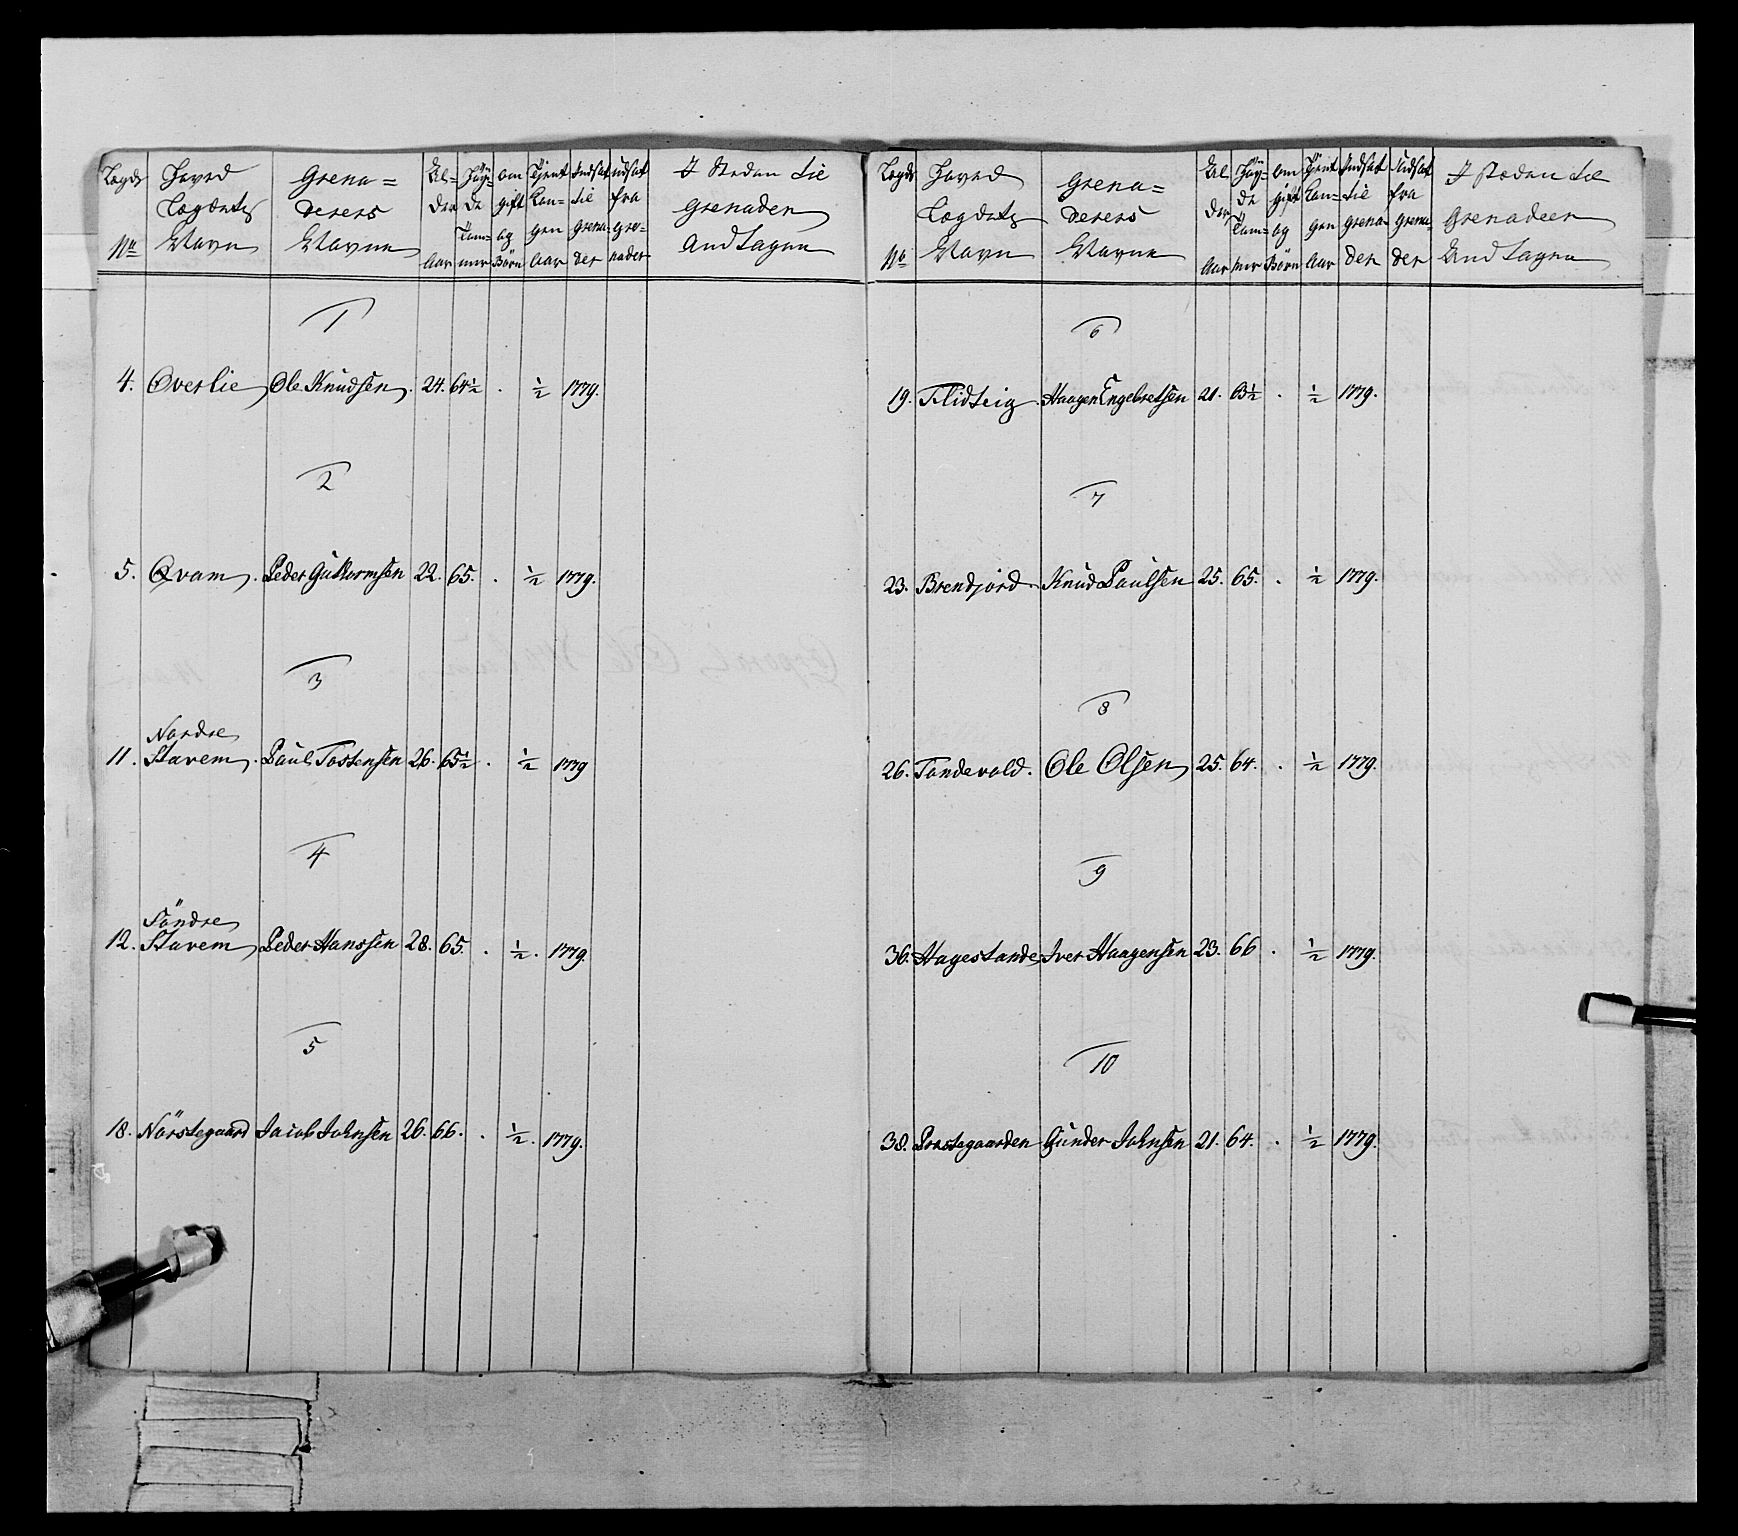 Lægds No Hoved Lægdets Navn Grena= derers Navne Al= der Aar Høy= de Tom= mer om gift og Børn Tjent Lan= gen Aar Indsat til Grena- der udsat fra Gre- nader I Steden til Grenadeer Andtagne
1
4. Øverlie Ole Knudsen. 24. 64½ . ½ 1779.
2
5. Qvam. Peder Guttormsen 22. 65. . ½ 1779.
3
Nordre
11. Stavem. Paul Tostensen 26. 65½ . ½ 1779
4
Söndre
12. Stavem Peder Hanssen 28. 65. . ½. 1779.
5
18. Nörstegaard Jacob Johnsen 26. 66. . ½. 1779.
Lægds No Hoved Lægdets Navn Grena= derers Navne Al der Aar Høy= de Tom= mer om gift og Børn Tjent Lan= gen Aar Indsat til Grena- der Udsat fra Grena- der I Steden til Grenadeer And tagne
6
19. Flidteig Haagen Engebretsen 21. 63½ . ½ 1779.
7
23. Brendjord. Knud Paulsen 25. 65. . ½ 1779.
8
26. Tandevold. Ole Olsen 25. 64. . ½ 1779.
9
36. Hagestande Iver Haagensen 23. 66 . ½ 1779.
10
38. Præstegaarden Gunder Johnsen 21. 64. . ½ 1779.